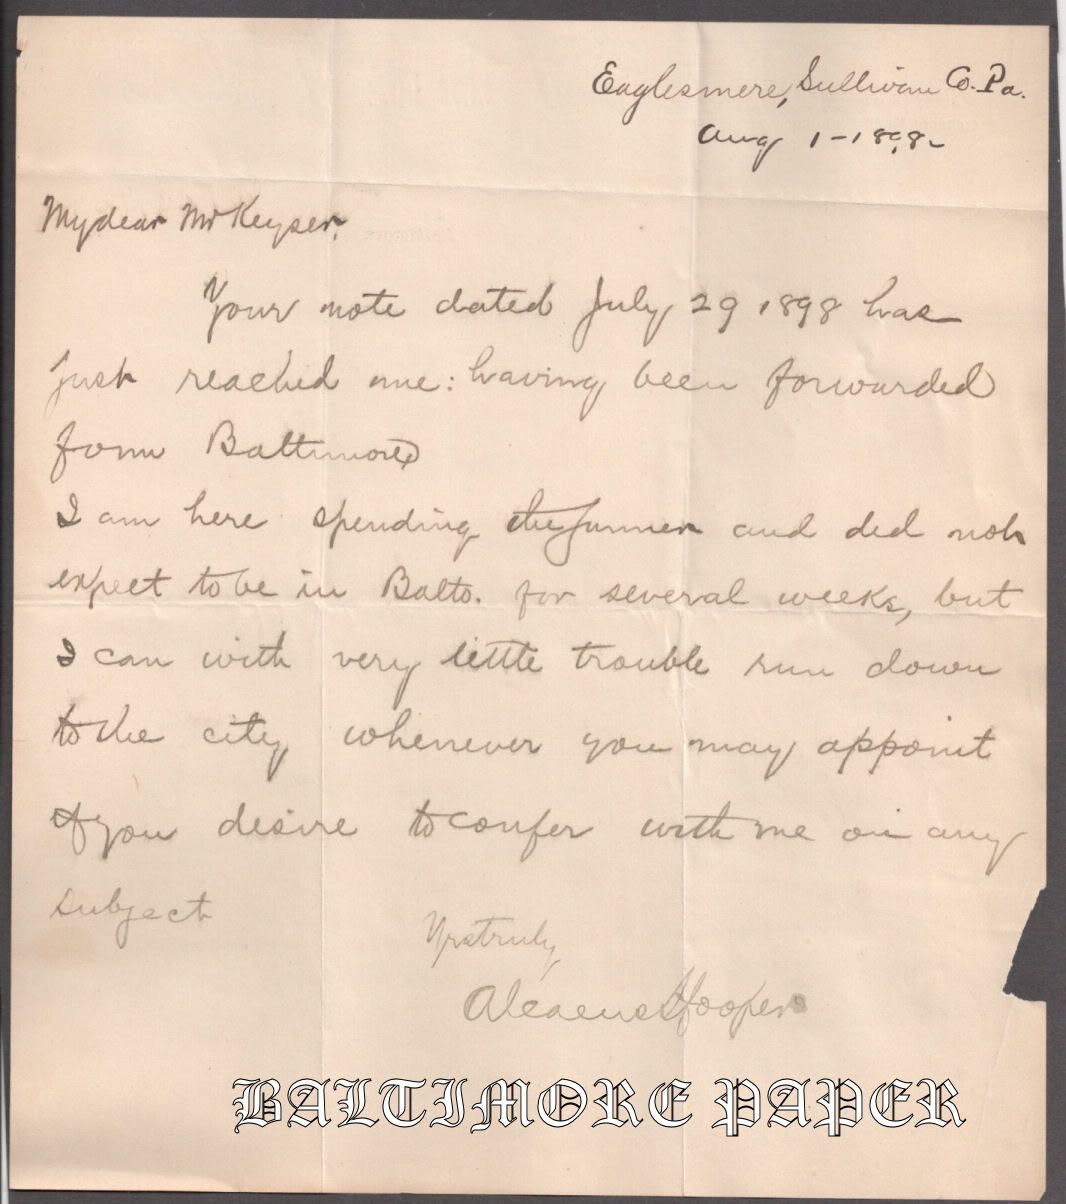 Eaglesmere, Sullivan Co. Pa.
Aug 1-1898-
My dear Mr Keyser,
Your note dated July 29 1898 has
just reached me: having been forwarded
from Baltimore
I am here spending the summer and did not
expect to be in Balto. for several weeks, but
I can with very little trouble run down
to the city whenever you may appoint
if you desire to confer with me on any
subject
Yrs truly,
Alcaeus Hooper
BALTIMORE PAPER